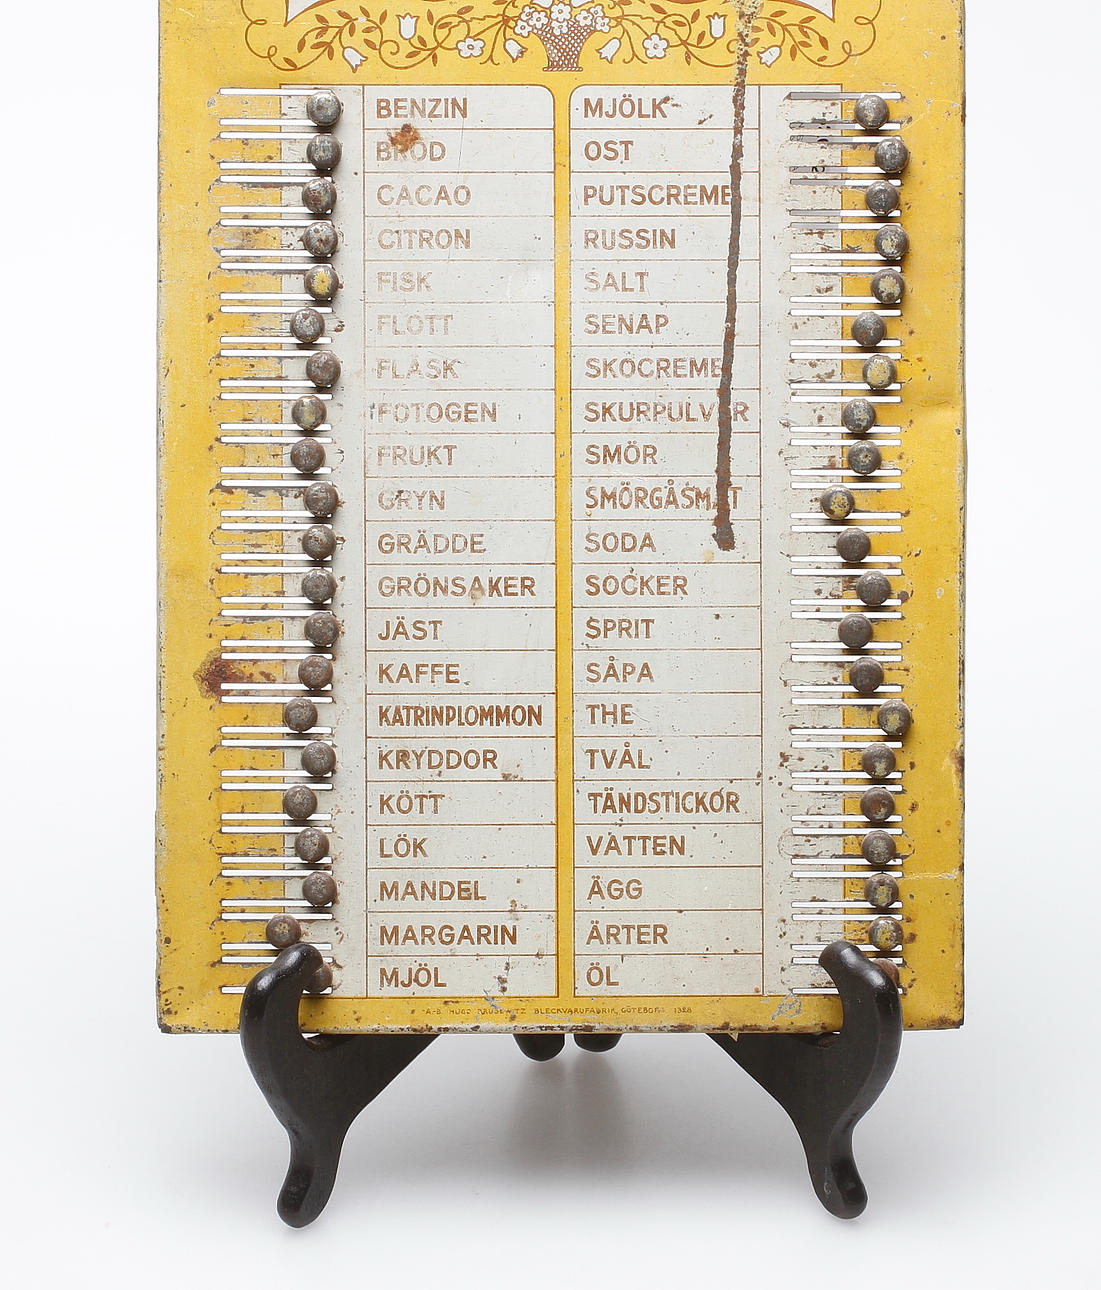 BENZIN
BRÖD
CACAO
CITRON
FISK
FLOTT
FLÄSK
FOTOGEN
FRUKT
GRYN
GRÄDDE
GRÖNSAKER
JÄST
KAFFE
KATRINPLOMMON
KRYDDOR
KÖTT
LÖK
MANDEL
MARGARIN
MJÖL
MJÖLK
OST
PUTSCREME
RUSSIN
SALT
SENAP
SKOCREME
SKURPULVER
SMÖR
SMÖRGÅSMAT
SODA
SOCKER
SPRIT
SÅPA
THE
TVÅL
TÄNDSTICKOR
VATTEN
ÄGG
ÄRTER
ÖL
A-B. HUGO KRUSEWITZ BLECKVARUFABRIK, GÖTEBORG 1328